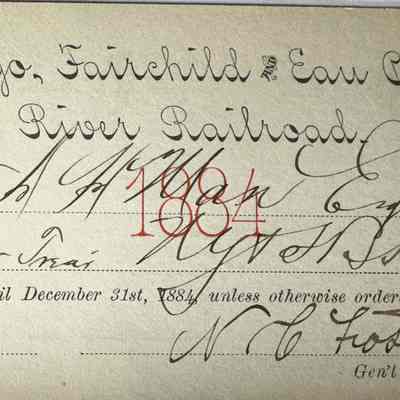 go, Fairchild AND Eau C
River Railroad.
A H Man Esq
1884
Treas
til December 31st, 1884, unless otherwise ordere
N C Fos
Gen'l